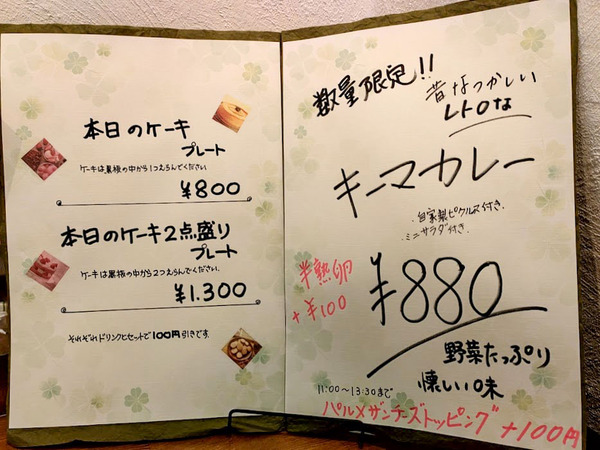 本日のケーキ
プレート
ケーキは黒板の中から1つえらんでください
¥800
本日のケーキ2点盛り
プレート
ケーキは黒板の中から2つえらんでください.
¥1.300
それぞれドリンクとセットで100円引きです.
数量限定!!
昔なつかしい
レトロな
キーマカレー
.自家製ピクルス付き.
.ミニサラダ付き.
半熟卵
+¥100
¥880
野菜たっぷり
懐しい味
11:00〜13:30まで
パルメザンチーズトッピング
+100円